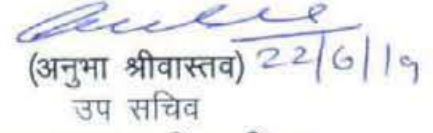 (अनुभा श्रीवास्तव) 22/6/19
उप सचिव